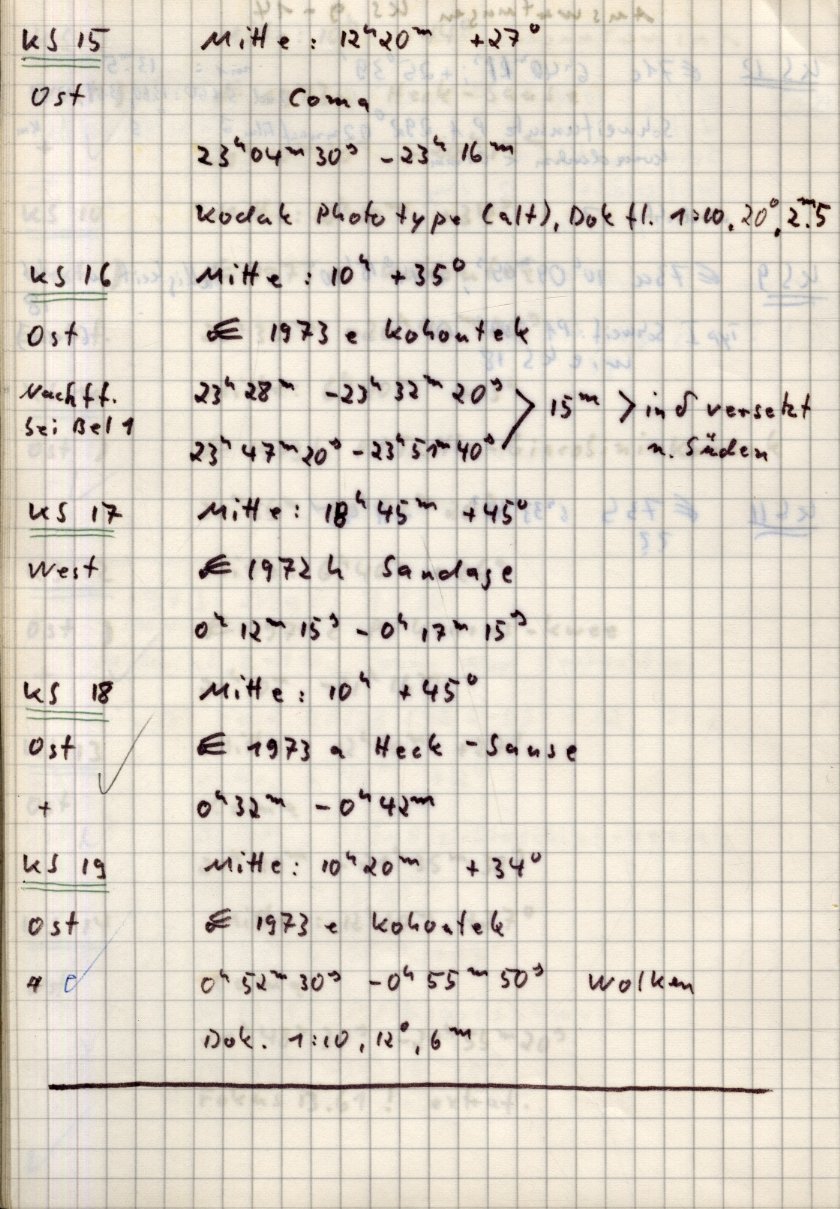 KS 15 Mitte: 12ʰ20ᵐ +27°
Ost Coma
23ʰ04ᵐ30ˢ - 23ʰ16ᵐ
Kodak Phototype (alt), Dokfl. 1:10, 20°, 2ᵐ.5
KS 16 Mitte: 10ʰ +35°
Ost 1973 e Kohoutek
Nachff. 23ʰ28ᵐ - 23ʰ32ᵐ20ˢ > 15ᵐ > in δ versetzt
bei Bel 1 23ʰ47ᵐ20ˢ - 23ʰ51ᵐ40ˢ n. Süden
KS 17 Mitte: 18ʰ45ᵐ +45°
West 1972 h Sandage
0ʰ12ᵐ15ˢ - 0ʰ17ᵐ15ˢ
KS 18 Mitte: 10ʰ +45°
Ost 1973 a Heck-Sause
+ 0ʰ32ᵐ - 0ʰ42ᵐ
KS 19 Mitte: 10ʰ20ᵐ +34°
Ost 1973 e Kohoutek
0ʰ52ᵐ30ˢ - 0ʰ55ᵐ50ˢ Wolken
Dok. 1:10, 12°, 6ᵐ